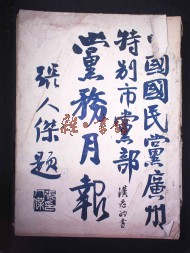 中國國民黨廣州
特別市黨部
黨務月報
張人傑題